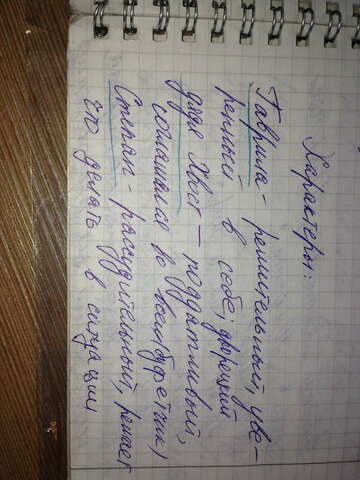 Характеры:
Гаврила - решительный, уве-
ренный в себе; дворецкий
дядя Хвост — податливый,
соглашался во всем буфетчик)
Степан - рассудительный, решает
что делать в ситуации